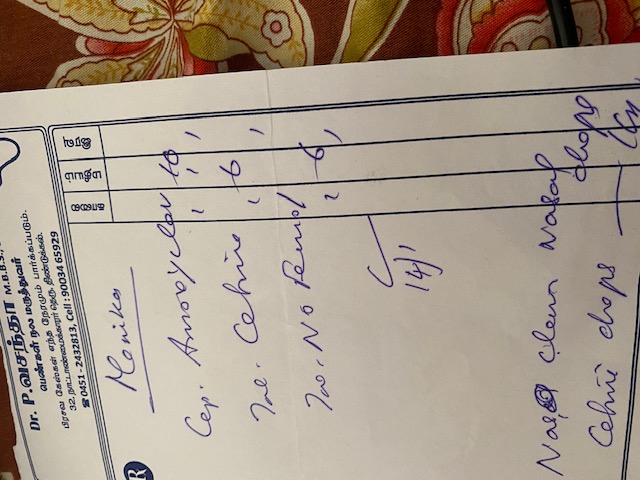 Dr. P.வசந்தா M.B.B.S.,
பெண்கள் நல மருத்துவர்
பிரசவ கேஸ்கள் எந்த நேரமும் பார்க்கப்படும்.
32, நாட்டாண்மைக்காரர் தெரு, திண்டுக்கல்.
☎0451-2432813, Cell : 90034 65929
காலை மதியம் இரவு
R
Monika
Cap. Amoxyclav 10
Tab. Cetrine 6
Tab. No Pemol 6
14/1
Nasal Nasal
drops
Cetrine drops